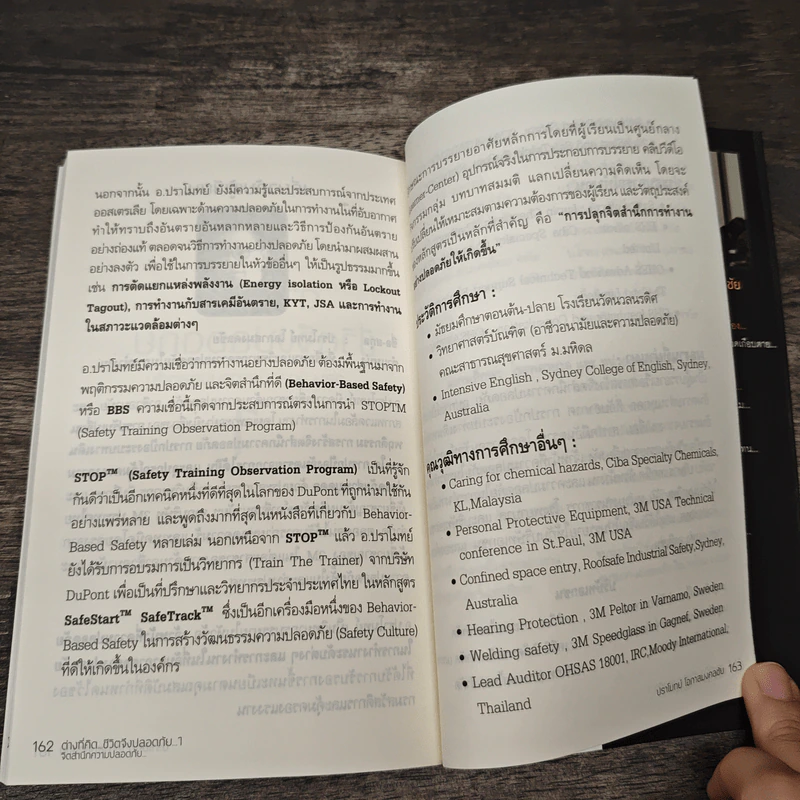 นอกจากนั้น อ.ปราโมทย์ ยังมีความรู้และประสบการณ์จากประเทศ
ออสเตรเลีย โดยเฉพาะด้านความปลอดภัยในการทำงานในที่อับอากาศ
ทำให้ทราบถึงอันตรายอันหลากหลายและวิธีการป้องกันอันตราย
อย่างถ่องแท้ ตลอดจนวิธีการทำงานอย่างปลอดภัย โดยนำมาผสมผสาน
อย่างลงตัว เพื่อใช้ในการบรรยายในหัวข้ออื่นๆ ให้เป็นรูปธรรมมากขึ้น
เช่น การตัดแยกแหล่งพลังงาน (Energy isolation หรือ Lockout
Tagout), การทำงานกับสารเคมีอันตราย, KYT, JSA และการทำงาน
ในสภาวะแวดล้อมต่างๆ
อ.ปราโมทย์มีความเชื่อว่าการทำงานอย่างปลอดภัย ต้องมีพื้นฐานมาจาก
พฤติกรรมความปลอดภัย และจิตสำนึกที่ดี (Behavior-Based Safety)
หรือ BBS ความเชื่อนี้เกิดจากประสบการณ์ตรงในการนำ STOPTM
(Safety Training Observation Program)
STOP™ (Safety Training Observation Program) เป็นที่รู้จัก
กันดีว่าเป็นอีกเทคนิคหนึ่งที่ดีที่สุดในโลกของ DuPont ที่ถูกนำมาใช้กัน
อย่างแพร่หลาย และพูดถึงมากที่สุดในหนังสือที่เกี่ยวกับ Behavior-
Based Safety หลายเล่ม นอกเหนือจาก STOP™ แล้ว อ.ปราโมทย์
ยังได้รับการอบรมการเป็นวิทยากร (Train The Trainer) จากบริษัท
DuPont เพื่อเป็นที่ปรึกษาและวิทยากรประจำประเทศไทย ในหลักสูตร
SafeStart™ SafeTrack™ ซึ่งเป็นอีกเครื่องมือหนึ่งของ Behavior-
Based Safety ในการสร้างวัฒนธรรมความปลอดภัย (Safety Culture)
ที่ดีให้เกิดขึ้นในองค์กร
162 ต่างที่คิด...ชีวิตจึงปลอดภัย...1
จิตสำนึกความปลอดภัย...
การบรรยายอาศัยหลักการโดยที่ผู้เรียนเป็นศูนย์กลาง
-Center) อุปกรณ์จริงในการประกอบการบรรยาย คลิปวีดีโอ
กลุ่ม บทบาทสมมติ แลกเปลี่ยนความคิดเห็น โดยจะ
เปลี่ยนให้เหมาะสมตามความต้องการของผู้เรียน และวัตถุประสงค์
หลักสูตรเป็นหลักที่สำคัญ คือ "การปลุกจิตสำนึกการทำงาน
ปลอดภัยให้เกิดขึ้น"
ประวัติการศึกษา :
• มัธยมศึกษาตอนต้น-ปลาย โรงเรียนวัดนวลนรดิศ
• วิทยาศาสตร์บัณฑิต (อาชีวอนามัยและความปลอดภัย)
คณะสาธารณสุขศาสตร์ ม.มหิดล
• Intensive English , Sydney College of English, Sydney,
Australia
คุณวุฒิทางการศึกษาอื่นๆ :
• Caring for chemical hazards, Ciba Specialty Chemicals,
KL,Malaysia
• Personal Protective Equipment, 3M USA Technical
conference in St.Paul, 3M USA
• Confined space entry, Roofsafe Industrial Safety,Sydney,
Australia
• Hearing Protection , 3M Peltor in Varnamo, Sweden
• Welding safety , 3M Speedglass in Gagnef, Sweden
• Lead Auditor OHSAS 18001, IRC,Moody International,
Thailand
ปราโมทย์ โอภาสมงคลชัย 163